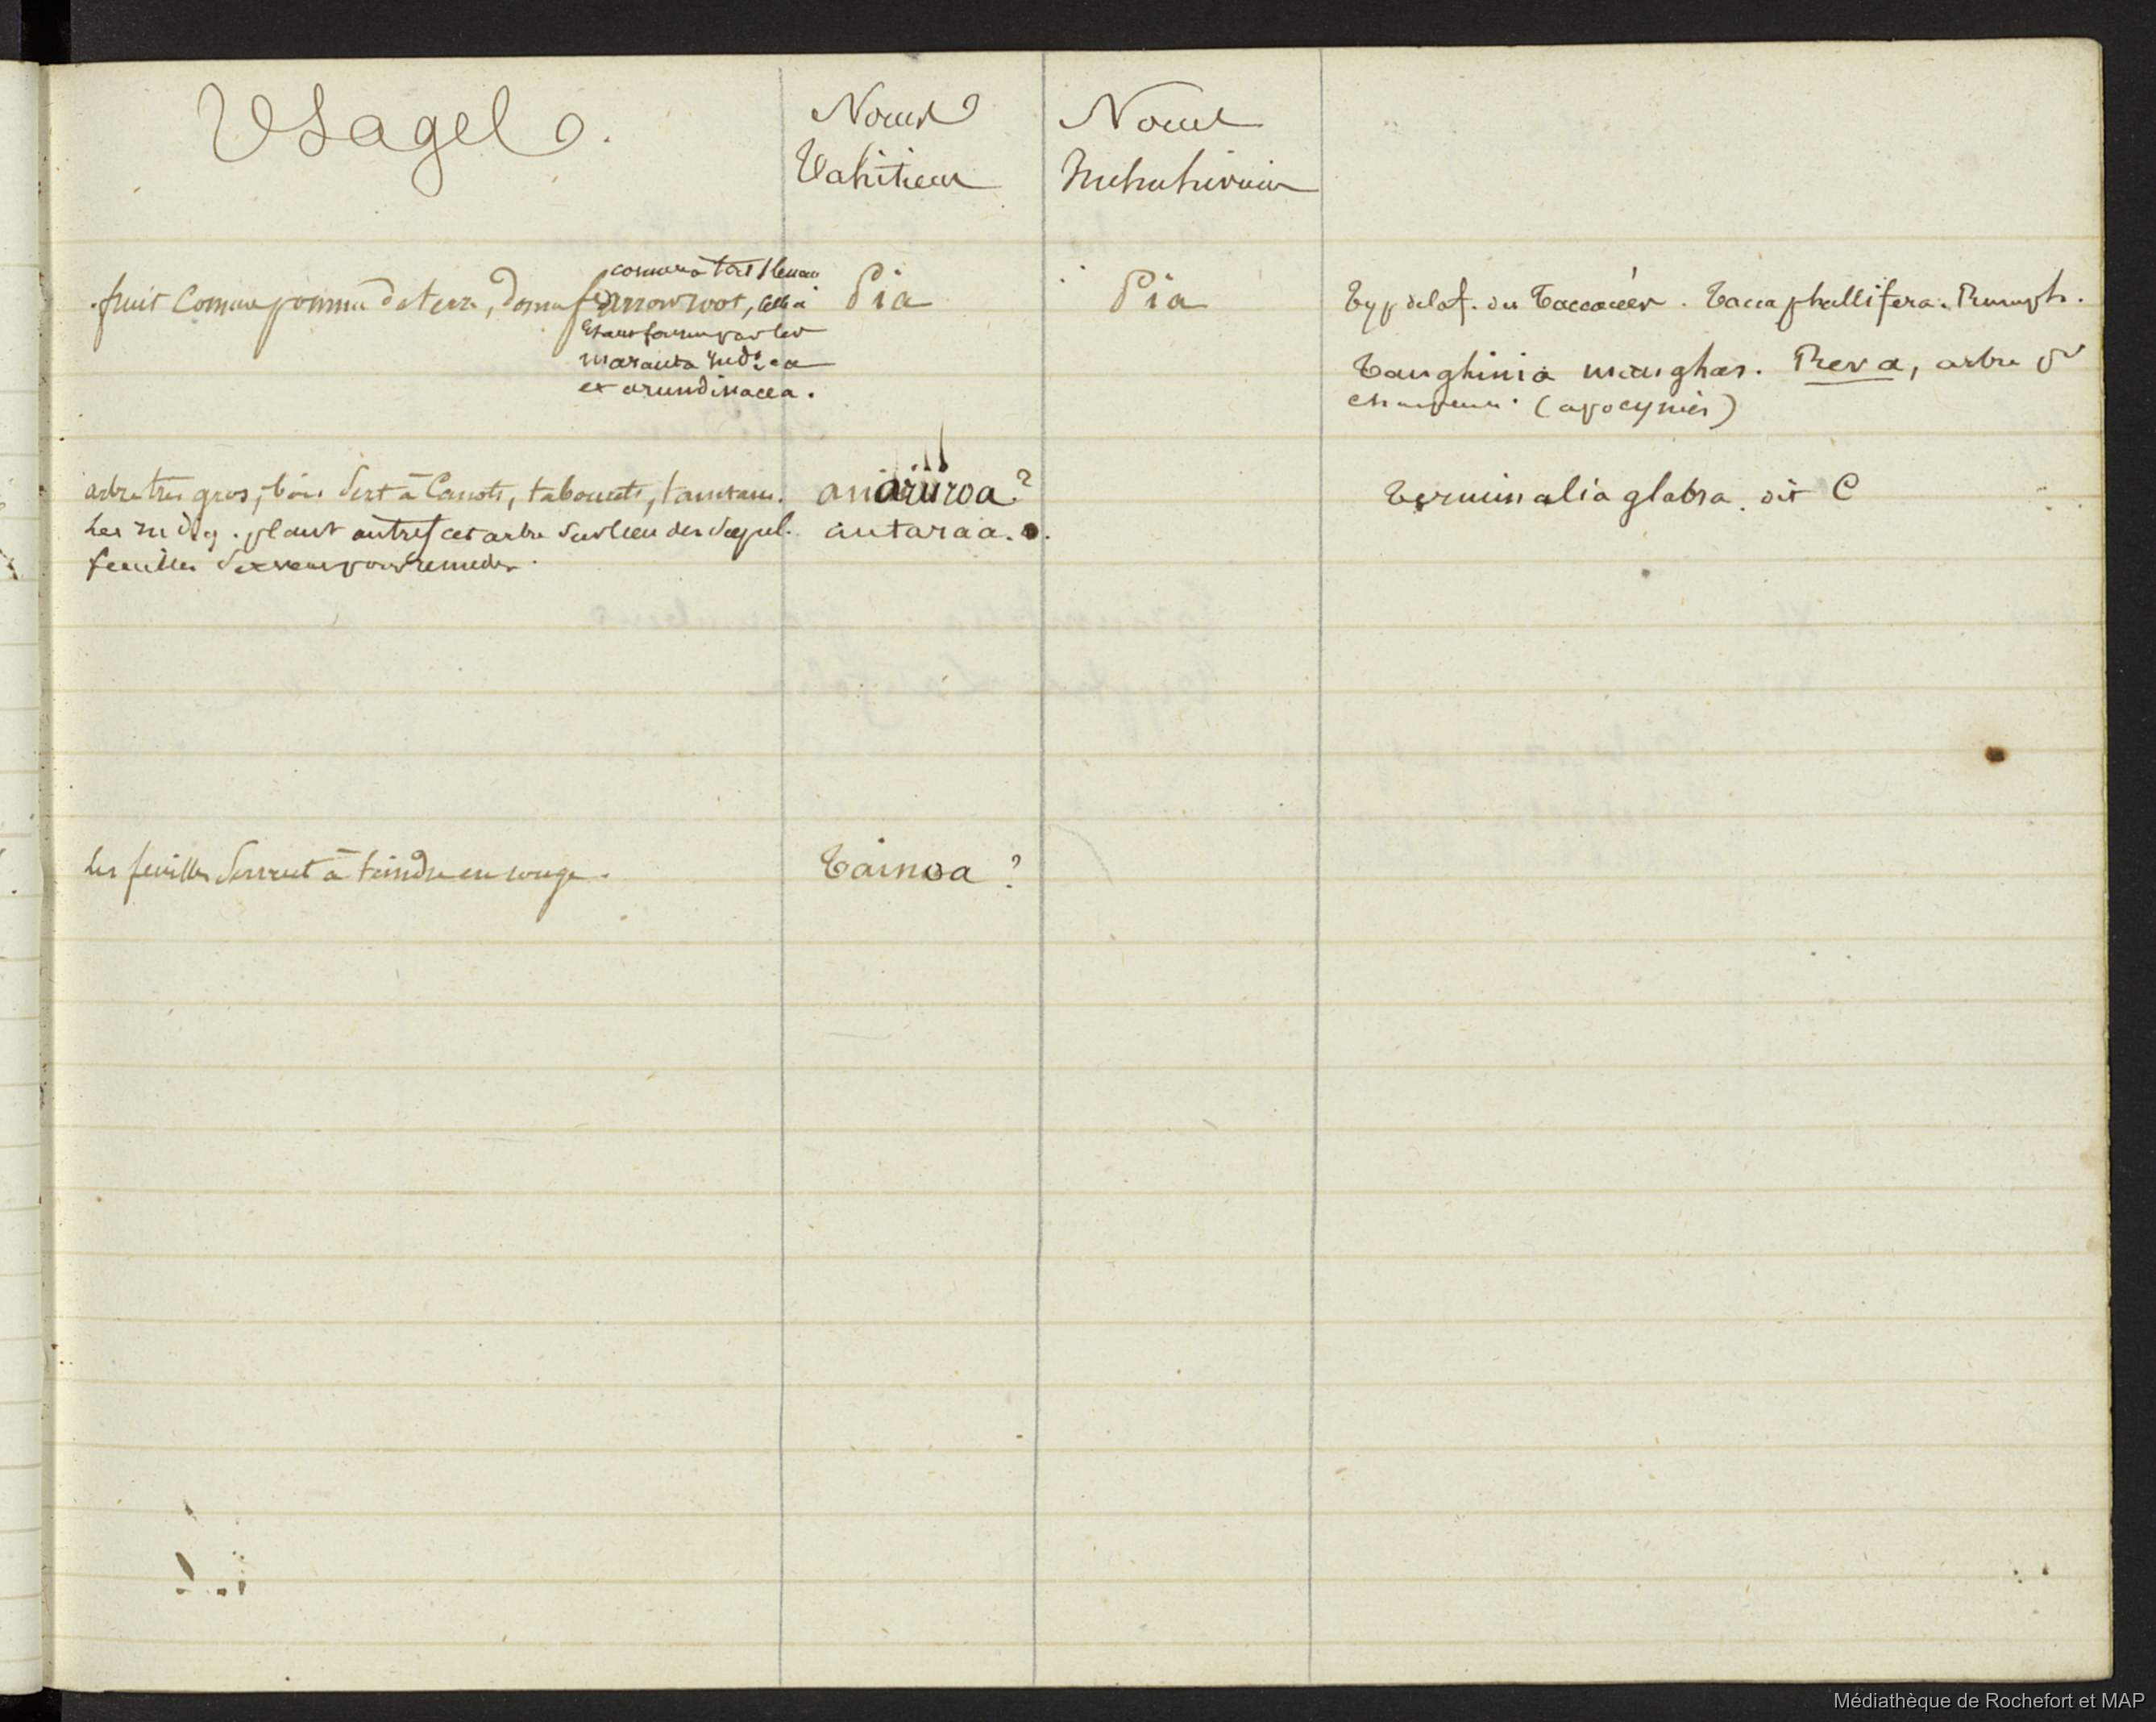 Usages.
Noms
Tahitiens
Noms
Nuhuhiviens
fruit Comme pomme de terre, donne arrowroot, celle à
étant fourni par les
maranta Indica
et arundinacea.
Pia
Pia
Typ de la f. des Taccacées. Tacca phallifera. Rumph.
Tanghinia manghas. Reva, arbre
(apocynées)
arbre très gros, bois sert à Canots, tabourets, tamtams.
Les indig. plant autref cet arbre sur lieu des sepul.
feuilles servent pour remèdes.
anariiroa?
autaraa.
Terminalia glabra. dit C
Les feuilles servent à teindre en rouge.
Tainoa ?
Médiathèque de Rochefort et MAP